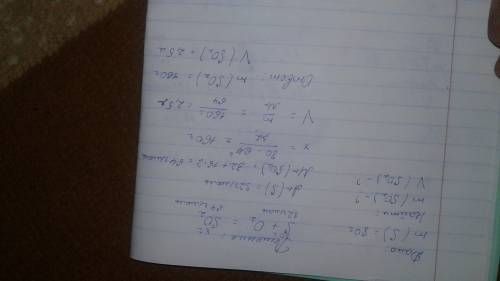 Дано:
m(S) = 80г
Найти:
m(SO₂) - ?
V(SO₂) - ?
Решение:
80г xг
S + O₂ = SO₂
32г/моль 64г/моль
Ar(S) = 32г/моль
Mr(SO₂) = 32 + 16·2 = 64г/моль
x = 80·64 / 32 = 160г
V = m / M = 160г / 64 = 2,5л
Ответ: m(SO₂) = 160г
V(SO₂) = 2.5л